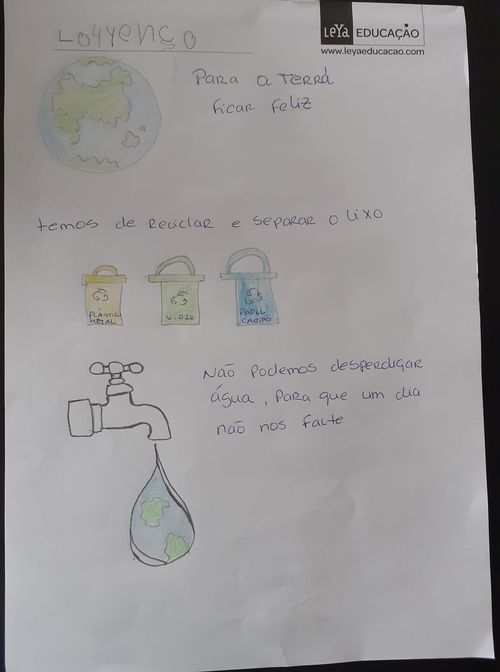 Lourenço
LeYa EDUCAÇÃO
www.leyaeducacao.com
Para a TERRA
ficar feliz
temos de Reciclar e separar o lixo
PLÁSTICO
METAL
VIDRO
PAPEL
CARTÃO
Não Podemos desperdiçar
água, para que um dia
não nos falte